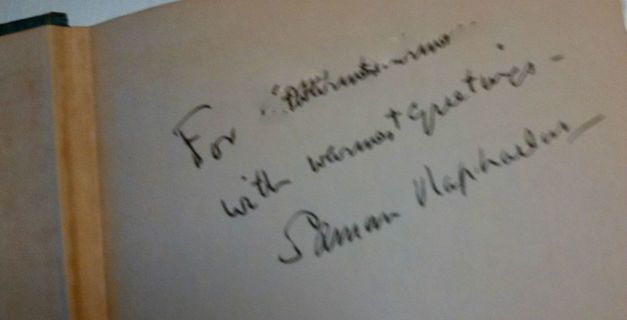 For
with warmest greetings -
Raphaelson